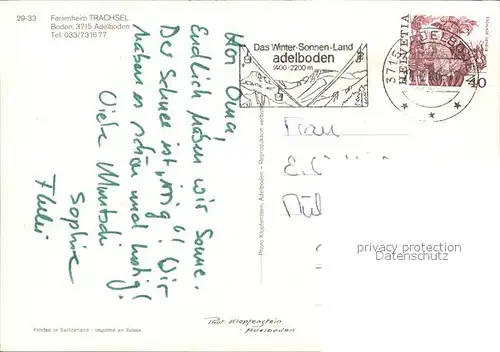 29-33
Ferienheim TRACHSEL
Boden, 3715 Adelboden
Tel. 033/731677
Hoi Oma
Endlich haben wir Sonne.
Der Schnee ist „rösig“! Wir
haben es schön und lustig!
Viele Müntschi
Sophie
Das Winter-Sonnen-Land
adelboden
1400-2200m
3715 ADELBODEN
HELVETIA
40
Frau
E.
privacy protection
watermark
Photo Klopfenstein, Adelboden – Reproduktion verboten
Phot. Klopfenstein
Adelboden
Printed in Switzerland - Imprimé en Suisse